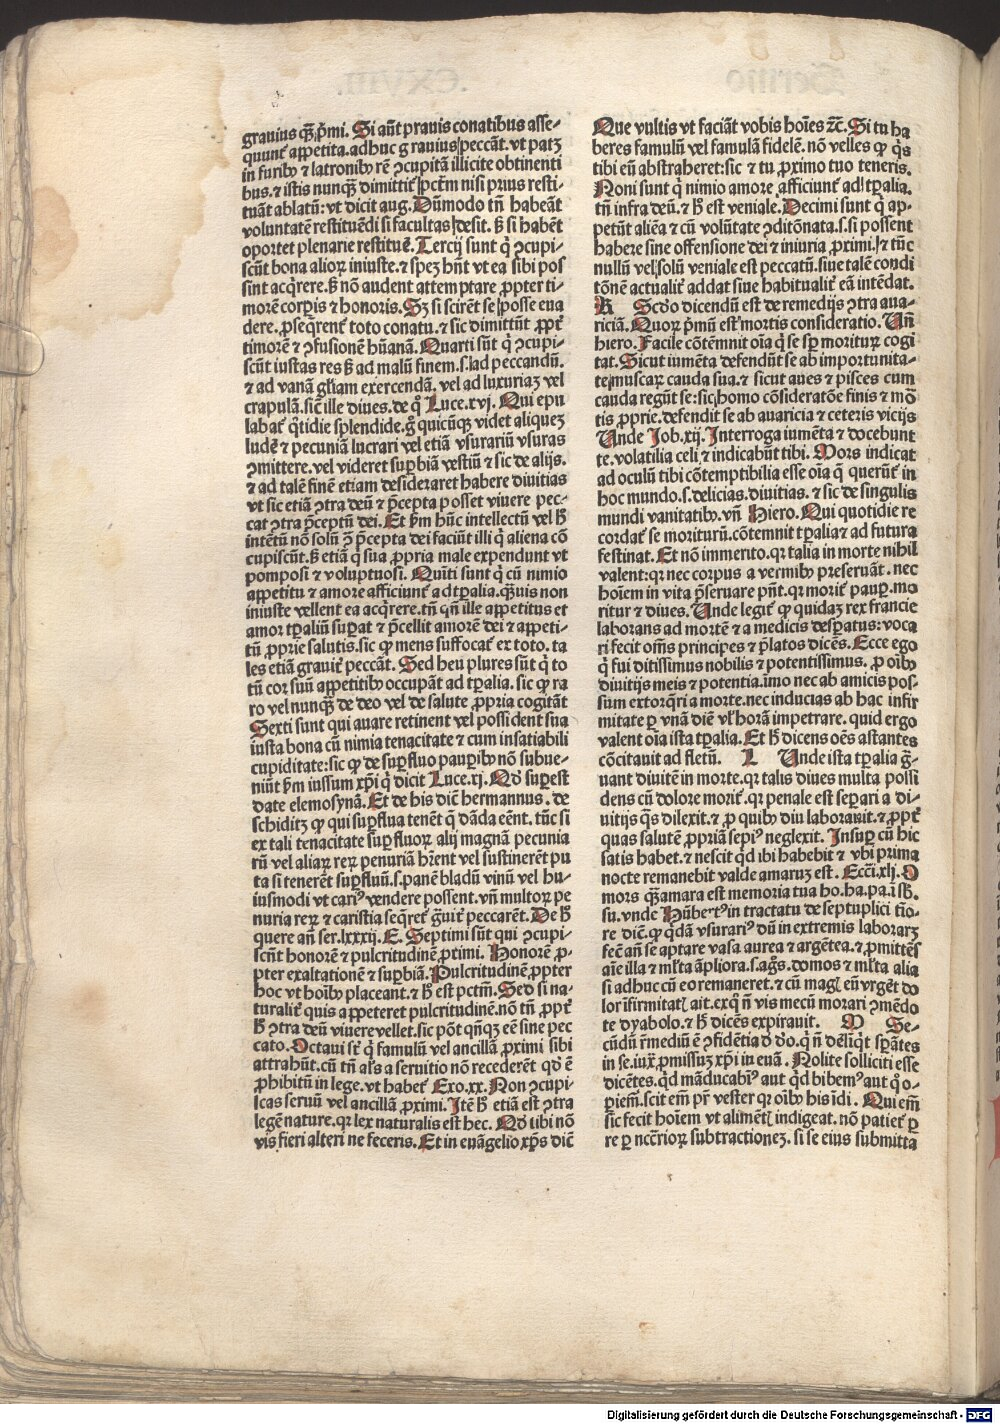 grauius qꝫ p̄mi. Si aūt prauis conatibus asse-
quunt̉ appetita. adhuc grauius peccāt. vt patꝫ
in furibꝰ ⁊ latronibꝰ rē ꝯcupitā illicite obtinenti
bus. ⁊ istis nunqꝫ dimittit̉ pctm̄ nisi prius resti-
tuāt ablatū: vt dicit aug. Dūmodo tn̄ habeāt
voluntatē restituēdi si facultas desit. ß si habēt
oportet plenarie restituē. Tercij sunt q̄ ꝯcupi-
scūt bona alioꝝ iniuste. ⁊ speꝫ hn̄t vt ea sibi pos
sint acq̄rere. ß nō audent attemptare ꝓpter ti-
morē corꝑis ⁊ honoris. Sꝫ si scirēt se posse eua
dere. ꝓseq̄rent̉ toto conatu. ⁊ sic dimittūt ꝓpt̉
timorē ⁊ ꝯfusionē hūanā. Quarti sūt q̄ ꝯcupi-
scūt iustas res ß ad malū finem. s. ad peccandū.
⁊ ad vanā gl̄iam exercendā. vel ad luxuriaꝫ vel
crapulā. sic̄ ille diues. de q̊ Luce. xvj. Qui epu
labat̉ q̄tidie splendide. g̊ quicūqꝫ videt aliqueꝫ
ludē ⁊ pecuniā lucrari vel etiā vsurariū vsuras
ꝯmittere. vel videret suꝑbiā vestiū ⁊ sic de alijs.
⁊ ad talē finē etiam desideraret habere diuitias
vt sic etiā ꝯtra deū ⁊ p̄cepta posset viuere pec-
cat ꝯtra p̄ceptū dei. Et ẜm hūc intellectū vel h̄
intētū nō solū ꝯ̄ p̄cepta dei faciūt illi q̄ aliena cō
cupiscūt. ß etiā q̄ sua ꝓpria male expendunt vt
pomposi ⁊ voluptuosi. Quīti sunt q̄ cū nimio
appetitu ⁊ amore afficiunt̉ ad tꝑalia. qꝫuis non
iniuste vellent ea acq̄rere. tn̄ qn̄ ille appetitus et
amor tꝑaliū suꝑat ⁊ p̄cellit amorē dei ⁊ appeti-
tū ꝓprie salutis. sic ꝙ mens suffocat̉ ex toto. ta
les etiā grauit̉ peccāt. Sed heu plures sūt q̄ to
tū cor suū appetitibꝰ occupāt ad tꝑalia. sic ꝙ ra
ro vel nunqꝫ de deo vel de salute ꝓpria cogitāt
Sexti sunt qui auare retinent vel possident sua
iusta bona cū nimia tenacitate ⁊ cum insatiabili
cupiditate: sic ꝙ de suꝑfluo pauꝑibꝰ nō subue-
niūt ẜm iussum xp̄i q̄ dicit Luce. xj. Qd̄ suꝑest
date elemosynā. Et de his dic̄ hermannus. de
schiditz ꝙ qui suꝑflua tenēt q̄ dāda eēnt. tūc si
ex tali tenacitate suꝑfluoꝝ alij magnā pecunia
rū vel aliaꝝ reꝝ penuriā hr̄ent vel sustinerēt pu
ta si tenerēt suꝑfluū. s. panē bladū vinū vel hu-
iusmodi vt cariꝰ vendere possent. vn̄ multoꝝ pe
nuria reꝝ ⁊ caristia seq̄ret̉ g̊uit̉ peccarēt. De h̄
quere an̄ ser. lxxxij. E. Septimi sūt qui ꝯcupi-
scūt honorē ⁊ pulcritudinē ꝓximi. Honorē ꝓ-
pter exaltationē ⁊ suꝑbiā. Pulcritudinē ꝓpter
hoc vt hoībꝰ placeant. ⁊ h̄ est pctm̄. Sed si na-
turalit̉ quis appeteret pulcritudinē. nō tn̄ ꝓpt̉
h̄ ꝯtra deū viuere vellet. sic pōt qn̄qꝫ eē sine pec
cato. Octaui st̄ q̄ famulū vel ancillā ꝓximi sibi
attrahūt. cū tn̄ al's a seruitio nō recederēt qd̄ ē
ꝓhibitū in lege. vt habet̉ Exo. xx. Non ꝯcupi-
scas seruū vel ancillā ꝓximi. Itē h̄ etiā est ꝯtra
legē nature. qꝛ lex naturalis est hec. Qd̄ tibi nō
vis fieri alteri ne feceris. Et in euāgelio xp̄s dic̄
Que vultis vt faciāt vobis hoīes ⁊c̄. Si tu ha
beres famulū vel famulā fidelē. nō velles ꝙ q̄s
tibi eū abstraheret: sic ⁊ tu ꝓximo tuo teneris.
Noni sunt q̄ nimio amore afficiunt̉ ad tꝑalia.
tn̄ infra deū. ⁊ h̄ est veniale. Decimi sunt q̄ ap-
petūt aliēa ⁊ cū volūtate ꝯditōnata. s. si possent
habere sine offensione dei ⁊ iniuria ꝓximi. ⁊ tūc
nullū vel solū veniale est peccatū. siue talē condi
tōnē actualit̉ addat siue habitualit̉ eā intēdat.
K Scd̄o dicendū est de remedijs ꝯtra aua-
riciā. Quoꝝ p̄mū est mortis consideratio. Vn̄
hiero. Facile cōtēmnit oīa q̄ se sꝑ moriturꝝ cogi
tat. Sicut iumēta defendūt se ab importunita-
te muscaꝝ cauda sua. ⁊ sicut aues ⁊ pisces cum
cauda regūt se: sic homo cōsideratōe finis ⁊ mō
tis ꝓprie. defendit se ab auaricia ⁊ ceteris vicijs
Unde Job. xij. Interroga iumēta ⁊ docebunt
te. volatilia celi ⁊ indicabūt tibi. Mors indicat
ad oculū tibi cōtemptibilia esse oīa q̄ querūt̉ in
hoc mundo. s. delicias. diuitias. ⁊ sic de singulis
mundi vanitatibꝰ. vn̄ Hiero. Qui quotidie re
cordat̉ se moriturū. cōtemnit tꝑalia ⁊ ad futura
festinat. Et nō immerito. qꝛ talia in morte nihil
valent: qꝛ nec corpus a vermibꝰ preseruāt. nec
hoīem in vita p̄seruare pn̄t. qꝛ morit̉ pauꝑ. mo
ritur ⁊ diues. Unde legit̉ ꝙ quidaꝫ rex francie
laborans ad mortē ⁊ a medicis desꝑatus: voca
ri fecit oms̄ principes ⁊ p̄latos dicēs. Ecce ego
q̄ fui ditissimus nobilis ⁊ potentissimus. ꝓ oībꝰ
diuitijs meis ⁊ potentia. imo nec ab amicis pos-
sum extorq̄ri a morte. nec inducias ab hac infir
mitate ꝑ vnā diē vl' horā impetrare. quid ergo
valent oīa ista tꝑalia. Et h̄ dicens oēs astantes
cōcitauit ad fletū. L Unde ista tꝑalia g̊-
uant diuitē in morte. qꝛ talis diues multa possi
dens cū dolore morit̉. qꝛ penale est seꝑari a di-
uitijs q̄s dilexit. ⁊ ꝓ quibꝰ diu laborauit. ⁊ ꝓpt̉
quas salutē ꝓpriā sepiꝰ neglexit. Insuꝑ cū hic
satis habet. ⁊ nescit qd̄ ibi habebit ⁊ vbi prima
nocte remanebit valde amaruꝫ est. Ecci. xlj. O
mors qꝫ amara est memoria tua ho. ha. pa. ī sb̄.
su. vnde Hūbertꝰ in tractatu de septuplici tīo-
re dic̄. ꝙ qdā vsurariꝰ dū in extremis laboraꝝ
fec̄ an̄ se aptare vasa aurea ⁊ argētea. ⁊ ꝓmittēs
aīe illa ⁊ ml̄ta āpliora. s. ag̊s. domos ⁊ ml̄ta alia
si adhuc cū eo remaneret. ⁊ cū magꝭ eū vrgēt do
lor īfirmitatꝭ ait. exq̊ n̄ vis mecū morari ꝯmēdo
te dyabolo. ⁊ h̄ dicēs expirauit. M Se-
cūdū r̄mediū ē ꝯfidētia d̄ d̄o. q̄ n̄ del̄iq̄t sꝑātes
in se. iux̄ ꝓmissuꝫ xp̄i in euā. Nolite solliciti esse
dicētes. qd̄ māducabimꝰ aut qd̄ bibemꝰ aut q̊ o-
ꝑiem̄. scit em̄ pr̄ vester qꝛ oībꝰ his īdi. Qui em̄
sic fecit hoīem vt alimētꝭ indigeat. nō patiet̉ ꝑ
re ꝑ ncc̄rioꝝ subtractioneꝫ. si se eius submitta
Digitalisierung gefördert durch die Deutsche Forschungsgemeinschaft - DFG